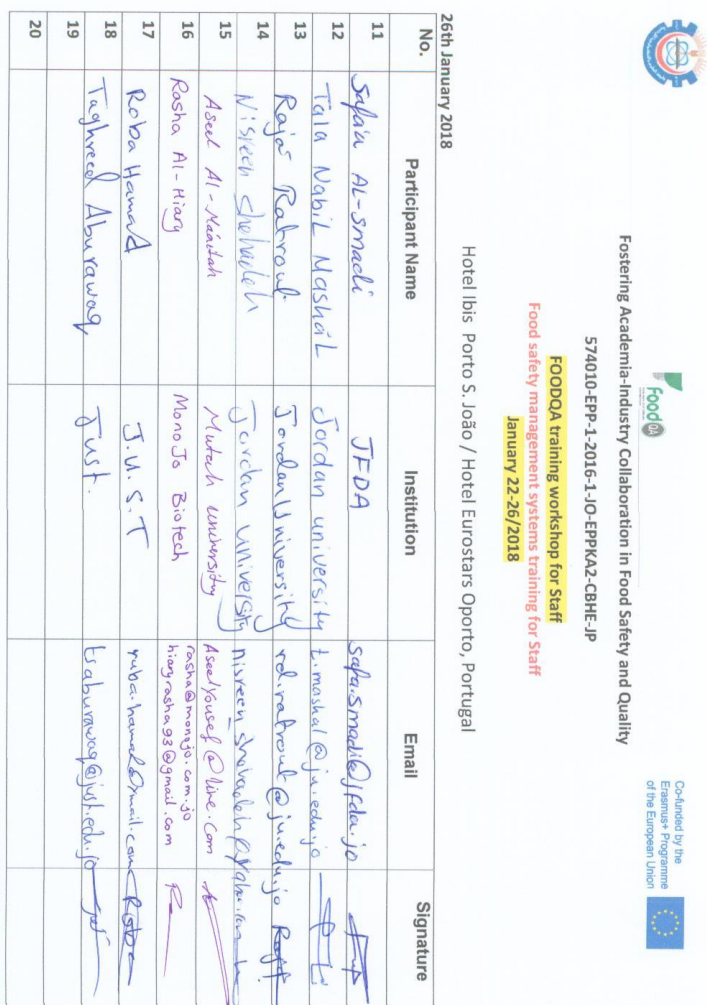 food QA
Co-funded by the
Erasmus+ Programme
of the European Union
Fostering Academia-Industry Collaboration in Food Safety and Quality
574010-EPP-1-2016-1-JO-EPPKA2-CBHE-JP
FOODQA training workshop for Staff
Food safety management systems training for Staff
January 22-26/2018
Hotel Ibis Porto S. João / Hotel Eurostars Oporto, Portugal
26th January 2018
No. Participant Name Institution Email Signature
11 Safa'a AL-smadi JFDA safa.smadi@jfda.jo
12 Tala Nabil Mashal Jordan university t.mashal@ju.edu.jo
13 Raja' Ratrout Jordan University rd.ratrout@ju.edu.jo
14 Nisreen shehadeh Jordan university nisreen
15 Aseel Al-Maaitah Mutah university Aseelyousef@live.com
16 Rasha Al-Hiary MonoJo Biotech rasha@monojo.com.jo
hiaryrasha93@gmail.com
17 Roba Hamad J.U.S.T Roba
18 Taghreed Aburawaq Just. tsaburawaq@just.edu.jo
19
20